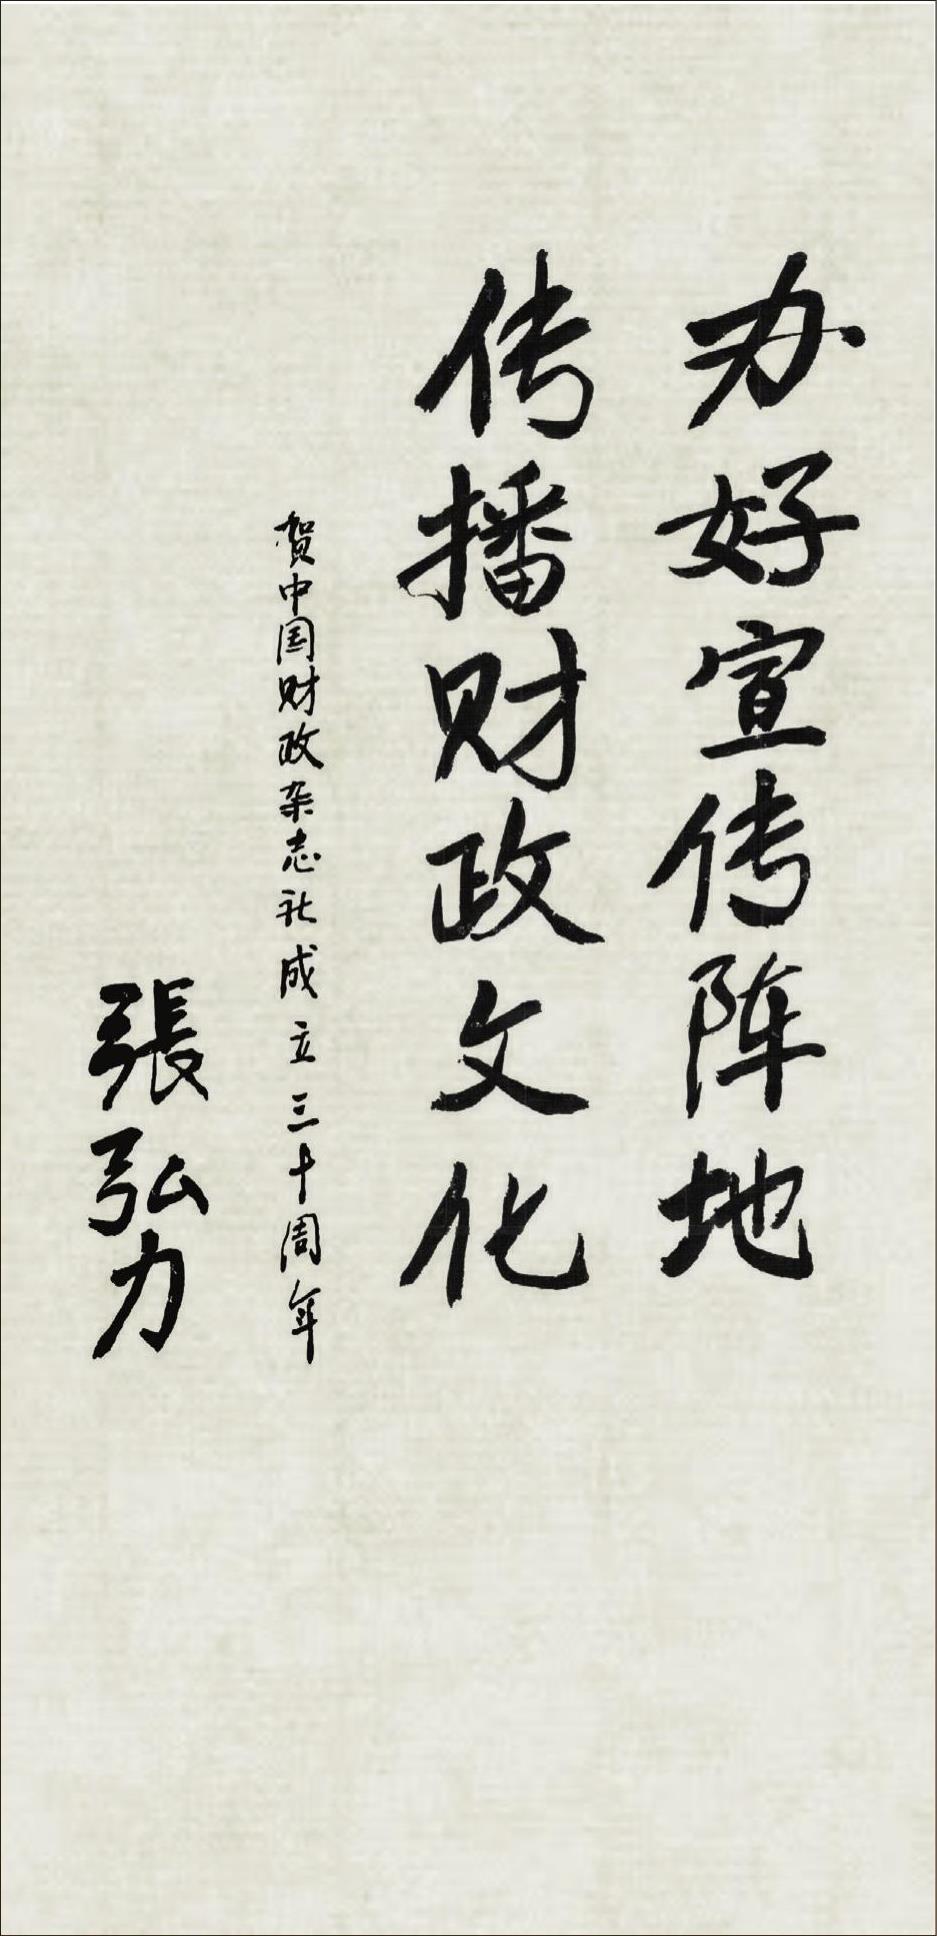 办好宣传阵地
传播财政文化
贺中国财政杂志社成立三十周年
張弘力